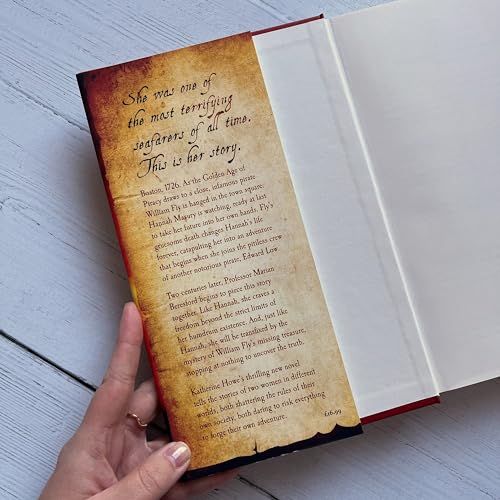 She was one of
the most terrifying
seafarers of all time.
This is her story.
Boston, 1726. As the Golden Age of
Piracy draws to a close, infamous pirate
William Fly is hanged in the town square.
Hannah Masury is watching, ready at last
to take her future into her own hands. Fly's
gruesome death changes Hannah's life
forever, catapulting her into an adventure
that begins when she joins the pitiless crew
of another notorious pirate, Edward Low.
Two centuries later, Professor Marian
Beresford begins to piece this story
together. Like Hannah, she craves a
freedom beyond the strict limits of
her humdrum existence. And, just like
Hannah, she will be transfixed by the
mystery of William Fly's missing treasure,
stopping at nothing to uncover the truth.
Katherine Howe's thrilling new novel
tells the stories of two women in different
worlds, both shattering the rules of their
own society, both daring to risk everything
to forge their own adventure.
£16.99